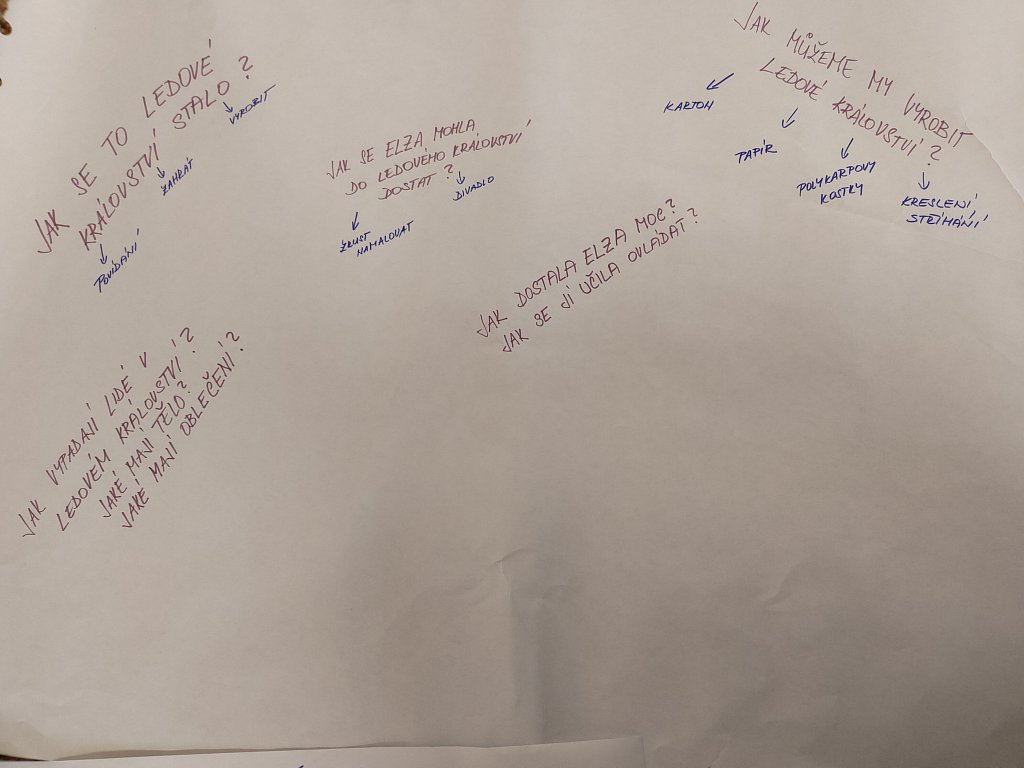 JAK SE TO LEDOVÉ
KRÁLOVSTVÍ STALO?
POVÍDÁNÍ
ZAHRÁT
VYROBIT
JAK SE ELZA MOHLA
DO LEDOVÉHO KRÁLOVSTVÍ
DOSTAT?
ZKUSIT
NAMALOVAT
DIVADLO
JAK MŮŽEME MY VYROBIT
LEDOVÉ KRÁLOVSTVÍ?
KARTON
PAPÍR
POLYKARPOVY
KOSTKY
KRESLENÍ
STŘÍHÁNÍ
JAK DOSTALA ELZA MOC?
JAK SE JÍ UČILA OVLÁDAT?
JAK VYPADAJÍ LIDÉ V
LEDOVÉM KRÁLOVSTVÍ?
JAKÉ MAJÍ TĚLO?
JAKÉ MAJÍ OBLEČENÍ?